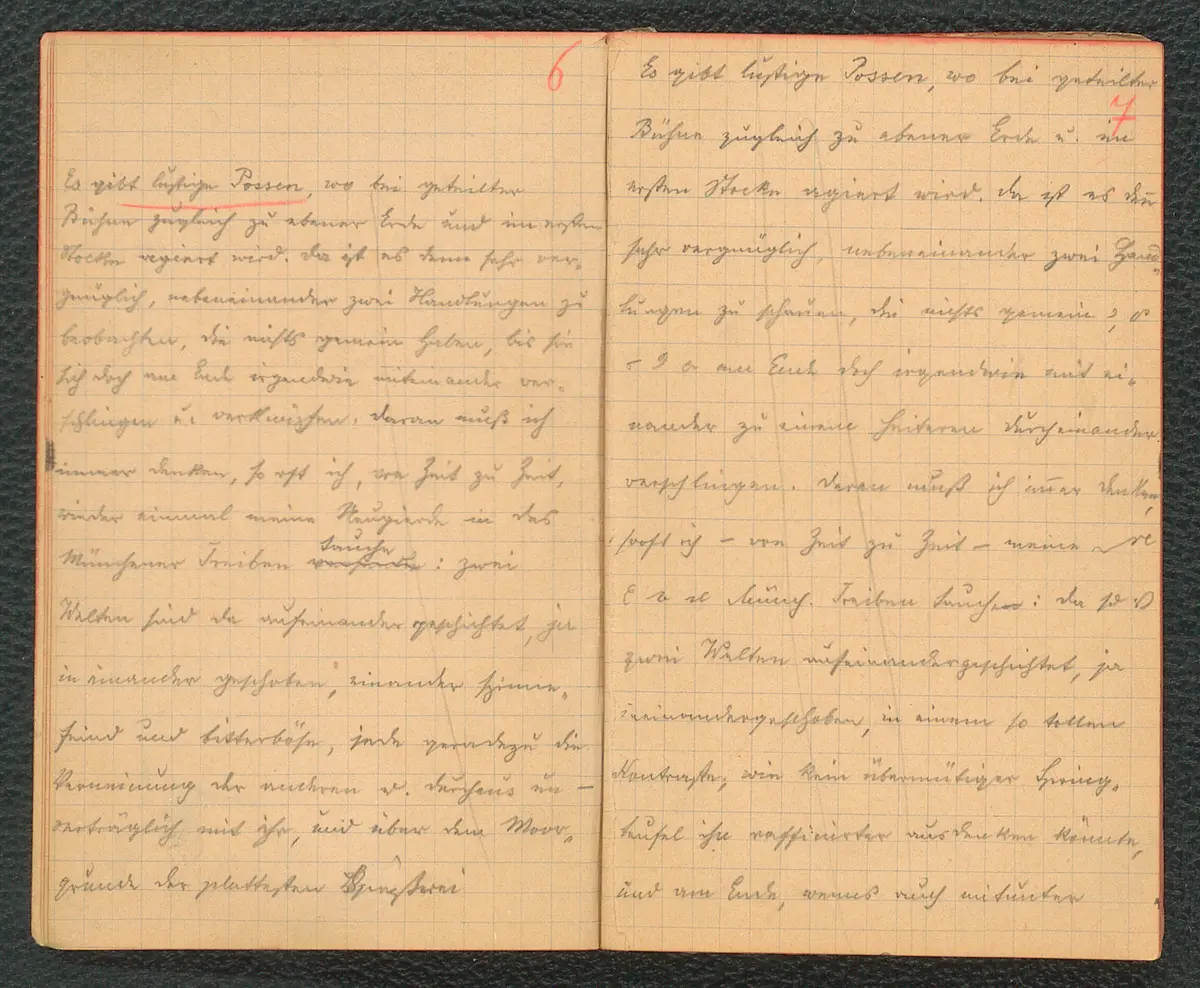 6
Es gibt lustige Possen, wo bei geteilter
Bühne zugleich zu ebener Erde und im ersten
Stocke agiert wird. Da ist es denn sehr ver-
gnüglich, nebeneinander zwei Handlungen zu
beobachten, die nichts gemein haben, bis sie
sich doch am Ende irgendwie miteinander ver-
schlingen u. verknüpfen. Daran muß ich
immer denken, so oft ich, von Zeit zu Zeit,
wieder einmal meine Neugierde in das
tauche
Münchener Treiben : zwei
Welten sind da aufeinander geschichtet, ja
in einander geschoben, einander spinne-
feind und bitterböse, jede geradezu die
Verneinung der anderen u. durchaus un-
verträglich mit ihr, und über dem Moor-
grunde der plattesten Spießerei
7
Es gibt lustige Possen, wo bei geteilter
Bühne zugleich zu ebener Erde u. im
ersten Stocke agiert wird. Da ist es den
sehr vergnüglich, nebeneinander zwei Hand-
lungen zu schauen, die nichts gemein
am Ende doch irgendwie mit ei-
nander zu einem heiteren Durcheinander
verschlingen. Daran muß ich imer denken,
sooft ich – von Zeit zu Zeit – meine
Münch. Treiben tauche : da
zwei Welten aufeinandergeschichtet, ja
ineinandergeschoben, in einem so tollen
Kontraste, wie kein übermütiger Spring-
teufel ihn raffinirter ausdenken könnte,
und am Ende, wenns auch mitunter